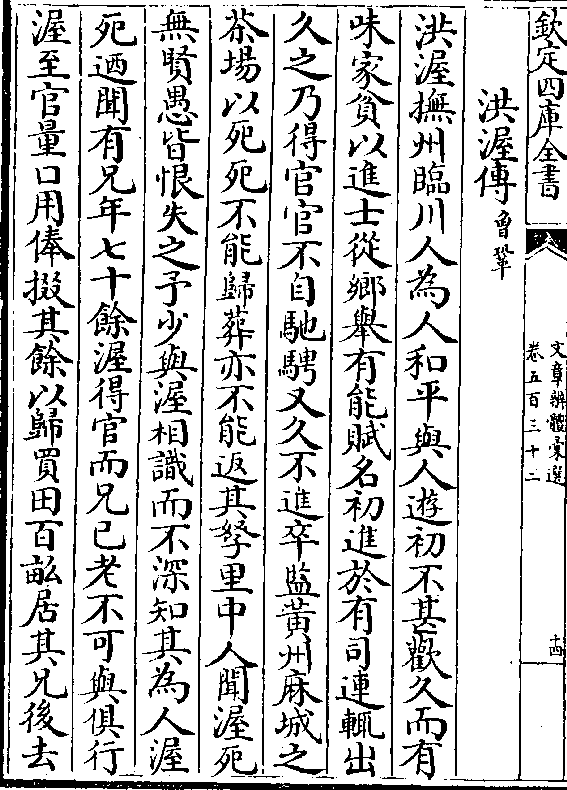 欽定四庫全書
文章辨體彙選
卷五百三十二
十四
洪渥傳 曾鞏
洪渥撫州臨川人為人和平與人遊初不甚歡久而有
味家貧以進士從鄉舉有能賦名初進於有司連輒出
久之乃得官官不自馳騁又久不進卒監黃州麻城之
茶場以死死不能歸葬亦不能返其孥里中人聞渥死
無賢愚皆恨失之予少與渥相識而不深知其為人渥
死迺聞有兄年七十餘渥得官而兄已老不可與俱行
渥至官量口用俸掇其餘以歸買田百畝居其兄後去